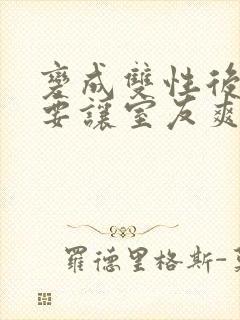 變成雙性後
要讓室友爽
羅德里格斯-莫